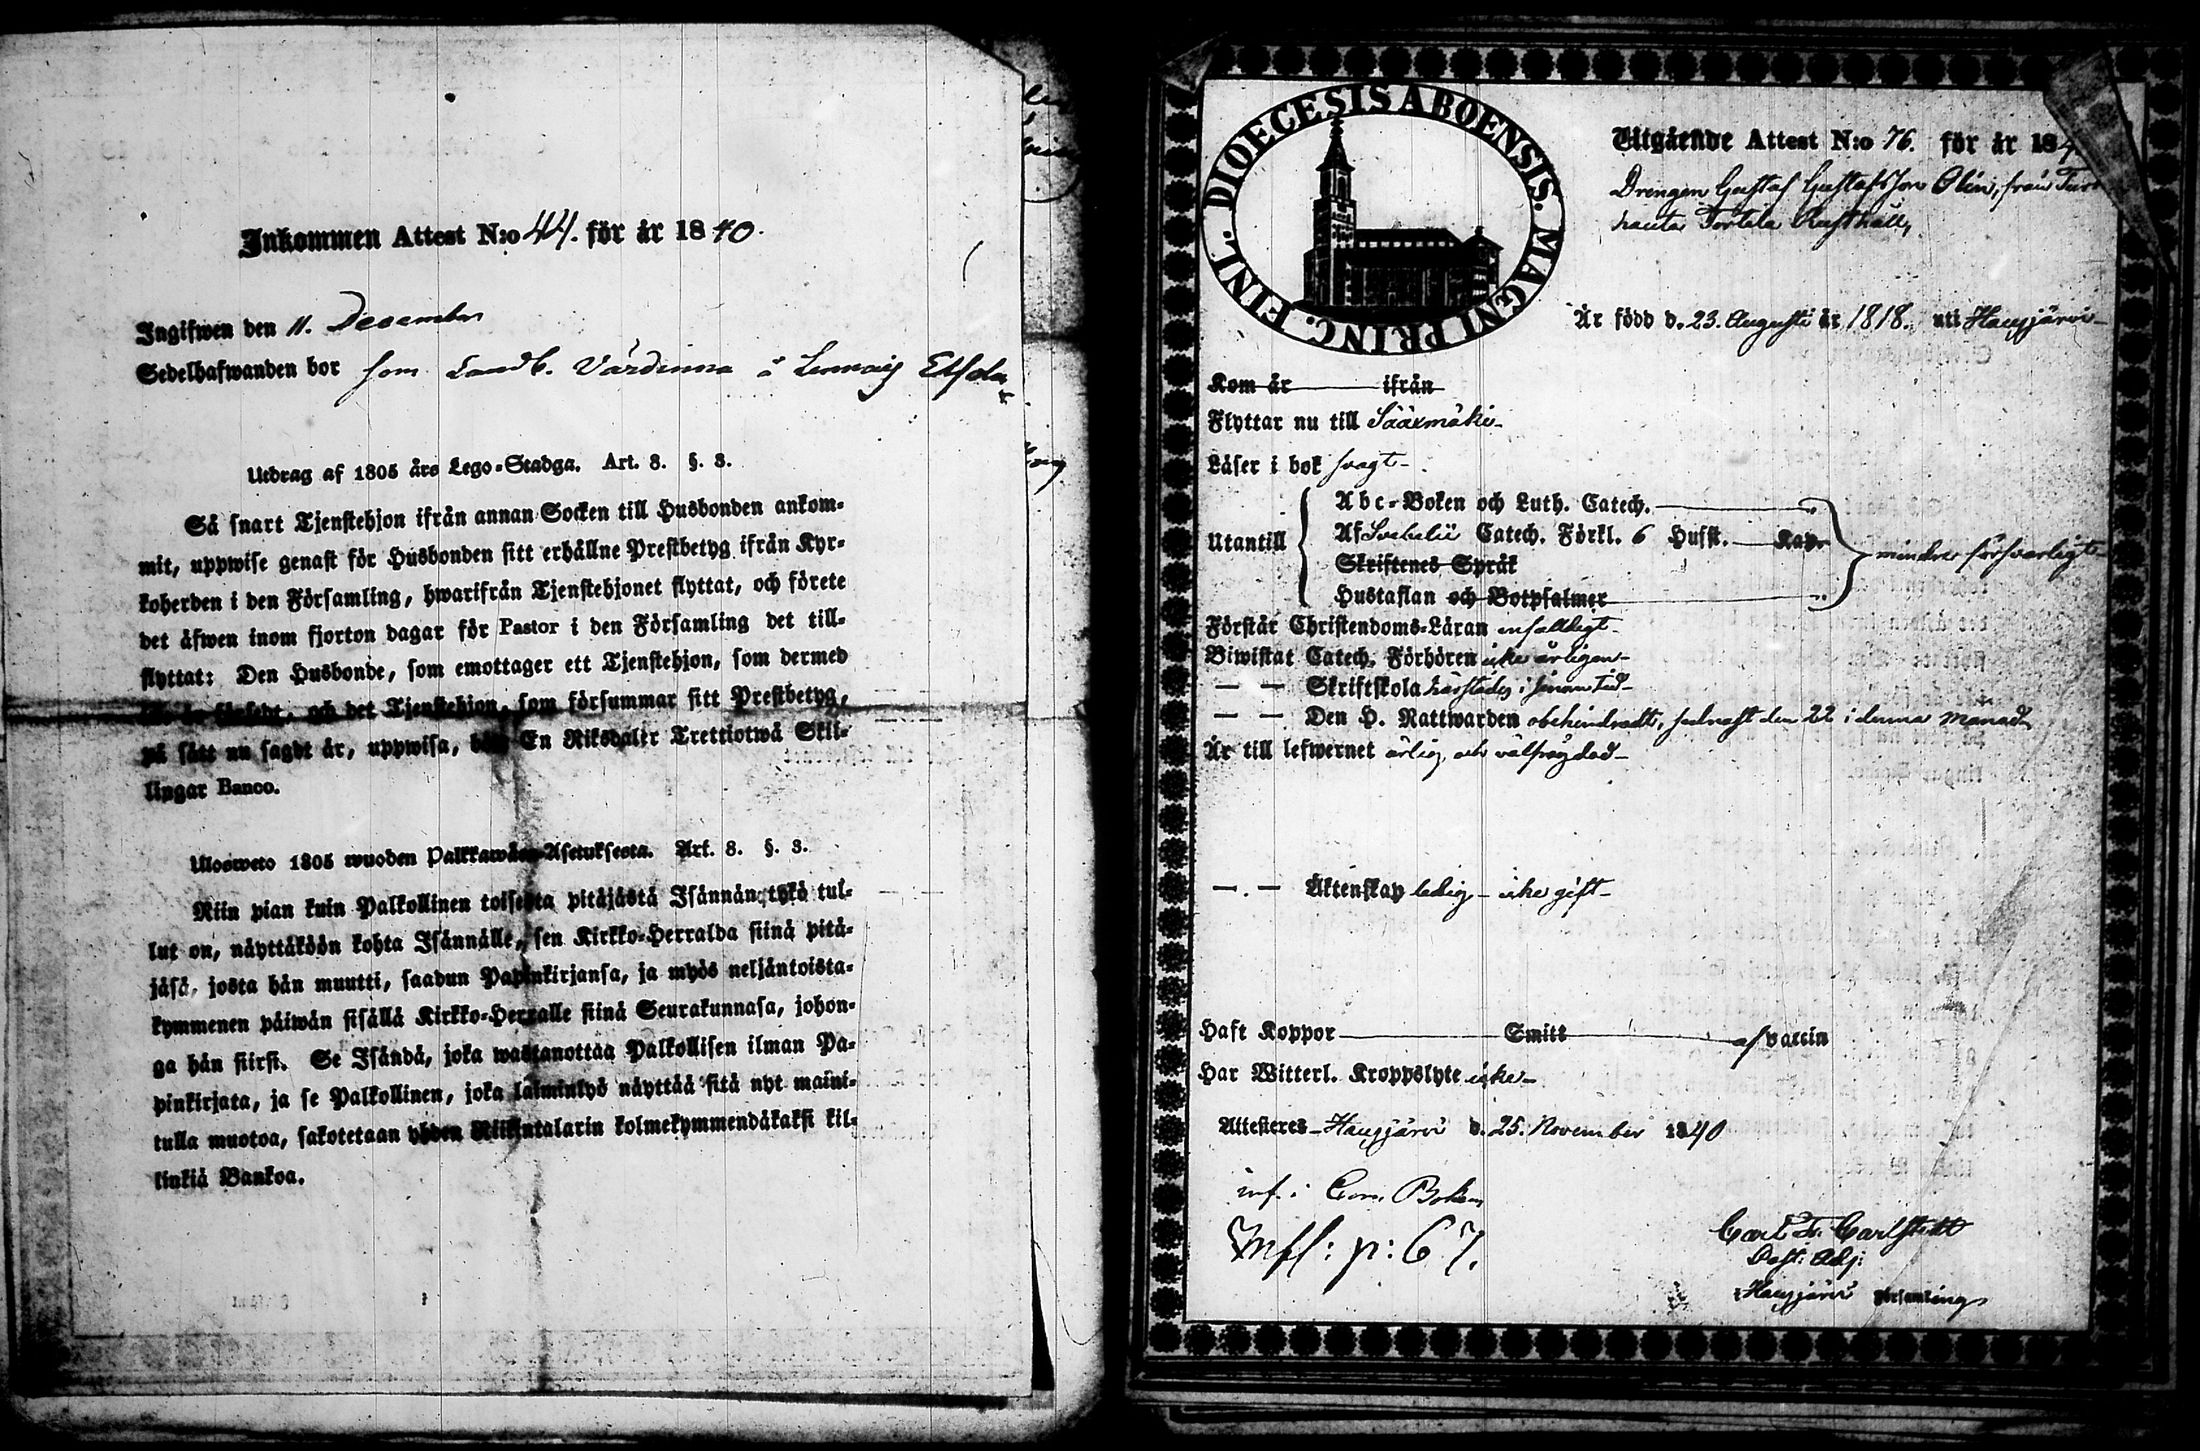 Inkommen Attest N:o 44. för år 1840.
Ingifwen den 11. December
Sedelhafwanden bor som Landb. Värdinna å
Utdrag af 1805 års Lego-Stadga. Art. 8. §. 3.
Så snart Tjenstehjon ifrån annan Socken till Husbonden ankom-
mit, uppwise genast för Husbonden sitt erhållne Prestbetyg ifrån Kyr-
koherden i den Församling, hwarifrån Tjenstehjonet flyttat, och förete
det äfwen inom fjorton dagar för Pastor i den Församling det till-
flyttat: Den Husbonde, som emottager ett Tjenstehjon, som dermed
och det Tjenstehjon, som försummar sitt Prestbetyg,
på sätt nu sagdt är, uppwisa, En Riksdaler Trettiotwå Skil-
lingar Banco.
Ulosweto 1805 wuoden Palkkawäen-Asetuksesta. Art. 8. §. 3.
Niin pian kuin Palkollinen toisesta pitäjästä Isännän tykö tul-
lut on, näyttäköön kohta Isännälle, sen Kirkko-Herralda siinä pitä-
jäsä, josta hän muutti, saadun Papinkirjansa, ja myös neljäntoista-
kymmenen päiwän sisällä Kirkko-Herralle siinä Seurakunnasa, johon-
ga hän siirsi. Se Isändä, joka wastanottaa Palkollisen ilman Pa-
pinkirjata, ja se Palkollinen, joka laiminlyö näyttää sitä nyt maini-
tulla muotoa, sakotetaan yhden Riikintalarin kolmekymmendäkaksi kil-
linkiä Bankoa.
DIOECESIS ABOENSIS. MAGNI PRINC. FINL.
Utgående Attest N:o 76. för år 18
Drengen Gustaf Gustafsson Olin, från
Är född d. 23. Augusti år 1818. uti Hausjärvi
Kom år ifrån
Flyttar nu till Sääxmäki
Läser i bok svagt
Abc-Boken och Luth. Catech.
Utantill Af Svebelii Catech. Förkl. 6 Hufst. mindre försvarligt
Skriftenes Språk
Hustaflan och Botpsalmer
Förstår Christendoms-Läran enfalldigt
Biwistat Catech. Förhören icke årligen
— — Skriftskola härstädes i sinom tid
— — Den H. Nattwarden obehindradt, sednast den 22 i denna Månad
Är till lefwernet ärlig och välfrägdad
— . — Äktenskap ledig – icke gift
Haft Koppor Smitt af vaccin
Har Witterl. Kroppslyte icke
Attesteres Hausjärvi d. 25. November 1840
inf. i Com. Boken
Infl: p: 67.
Carl Fr. Carlstedt
Past: Adj:
i Hausjärvi Församling